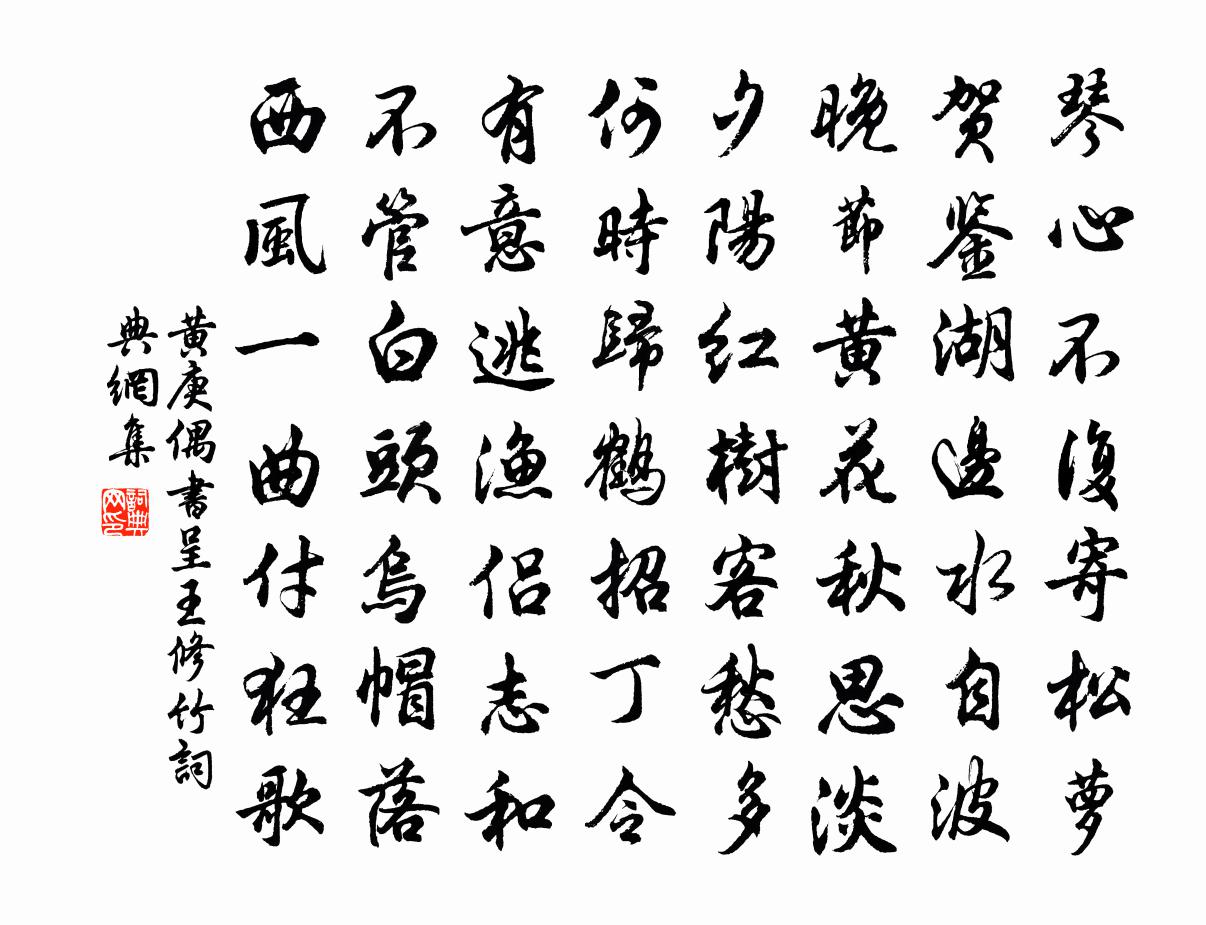 琴心不復寄松萝
贺鉴湖邊水自波
晚節黄花秋思淡
夕陽红樹客愁多
何時歸鶴招丁令
有意逃渔侣志和
不管白頭烏帽落
西風一曲付狂歌
黄庚偶書呈王修竹詞
典網集
詞典网印